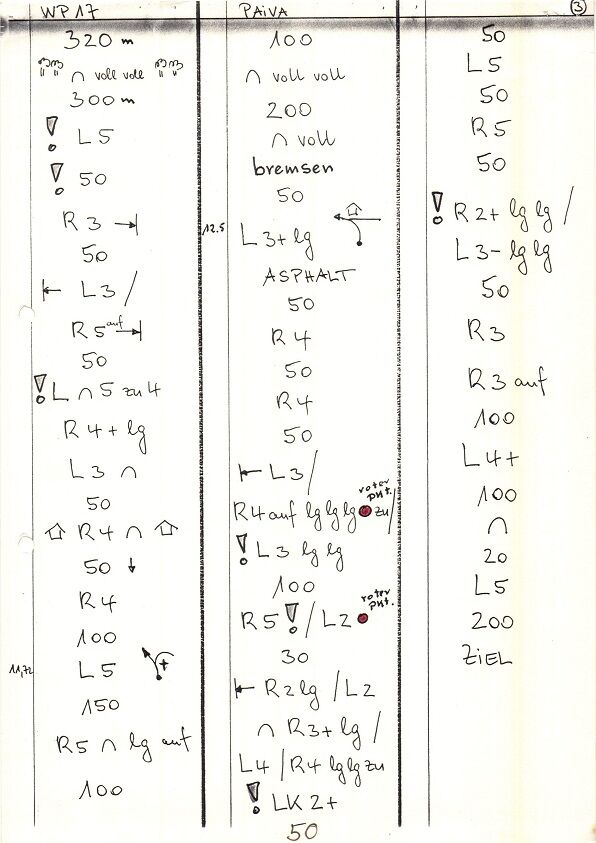 WP 17
320 m
∩ voll voll
300 m
! L5
! 50
R3 →|
50
|← L3 /
R5 auf →|
50
! L ∩ 5 zu 4
R4+ lg
L3 ∩
50
R4 ∩
50 ↓
R4
100
11,72 L5
150
R5 ∩ lg auf
100
PAIVA
100
∩ voll voll
200
∩ voll
bremsen
50
12.5 L3+ lg
ASPHALT
50
R4
50
R4
50
|← L3 /
roter
pkt.
R4 auf lg lg lg zu /
! L3 lg lg
100
roter
pkt.
R5 ! / L2
30
|← R2 lg / L2
∩ R3+ lg /
L4 / R4 lg lg zu
! LK 2+
50
3
50
L5
50
R5
50
! R2+ lg lg /
L3- lg lg
50
R3
R3 auf
100
L4+
100
∩
20
L5
200
ZIEL